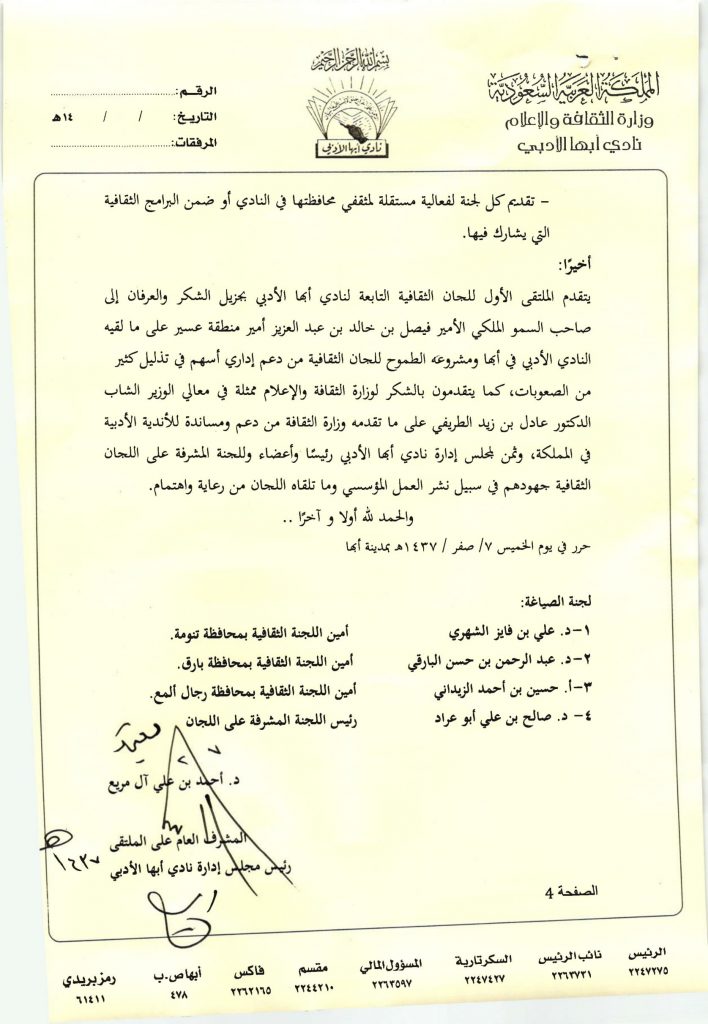 بسم الله الرحمن الرحيم
المملكة العربية السعودية
وزارة الثقافة والإعلام
نادي أبها الأدبي
نادي أبها الأدبي
الرقم:
التاريخ: / / ١٤هـ
المرفقات:
– تقديم كل لجنة لفعالية مستقلة لمثقفي محافظتها في النادي أو ضمن البرامج الثقافية
التي يشارك فيها.
أخيرًا:
يتقدم الملتقى الأول للجان الثقافية التابعة لنادي أبها الأدبي بجزيل الشكر والعرفان إلى
صاحب السمو الملكي الأمير فيصل بن خالد بن عبد العزيز أمير منطقة عسير على ما لقيه
النادي الأدبي في أبها ومشروعه الطموح للجان الثقافية من دعم إداري أسهم في تذليل كثير
من الصعوبات، كما يتقدمون بالشكر لوزارة الثقافة والإعلام ممثلة في معالي الوزير الشاب
الدكتور عادل بن زيد الطريفي على ما تقدمه وزارة الثقافة من دعم ومساندة للأندية الأدبية
في المملكة، وثمن لمجلس إدارة نادي أبها الأدبي رئيسًا وأعضاء وللجنة المشرفة على اللجان
الثقافية جهودهم في سبيل نشر العمل المؤسسي وما تلقاه اللجان من رعاية واهتمام.
والحمد لله أولا و آخرًا ..
حرر في يوم الخميس ٧/ صفر / ١٤٣٧هـ بمدينة أبها
لجنة الصياغة:
١-د. علي بن فايز الشهري أمين اللجنة الثقافية بمحافظة تنومة.
٢-د. عبد الرحمن بن حسن البارقي أمين اللجنة الثقافية بمحافظة بارق.
٣-أ. حسين بن أحمد الزيداني أمين اللجنة الثقافية بمحافظة رجال ألمع.
٤- د. صالح بن علي أبو عراد رئيس اللجنة المشرفة على اللجان
٢ ٧
د. أحمد بن علي آل مريع
المشرف العام على الملتقى
١٤٣٧ هـ
رئيس مجلس إدارة نادي أبها الأدبي
الصفحة 4
الرئيس ٢٢٤٧٢٧٥
نائب الرئيس ٢٢٦٣٧٣١
السكرتارية ٢٢٤٧٤٢٧
المسؤول المالي ٢٢٦٣٥٩٧
مقسم ٢٢٤٤٢١٠
فاكس ٢٢٦٢١٦٥
أبها ص.ب ٤٧٨
رمز بريدي ٦١٤١١